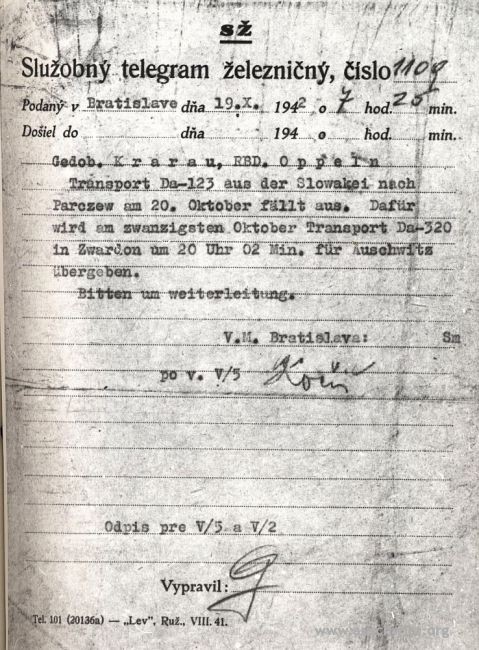 sž
Služobný telegram železničný, číslo 1109
Podaný v Bratislave dňa 19.X. 1942 o 7 hod. 25 min.
Došiel do dňa 194 o hod. min.
Gedob. K r a r a u, RBD. O p p e l n
Transport Da-123 aus der Slowakei nach
Parczew am 20. Oktober fällt aus. Dafür
wird am zwanzigsten Oktober Transport Da-320
in Zwardon um 20 Uhr 02 Min. für Auschwitz
übergeben.
Bitten um weiterleitung.
V.M. Bratislava: Sm
po v. V/5
Odpis pre V/5 a V/2
Vypravil:
Tel. 101 (20136a) — „Lev", Ruž., VIII. 41.